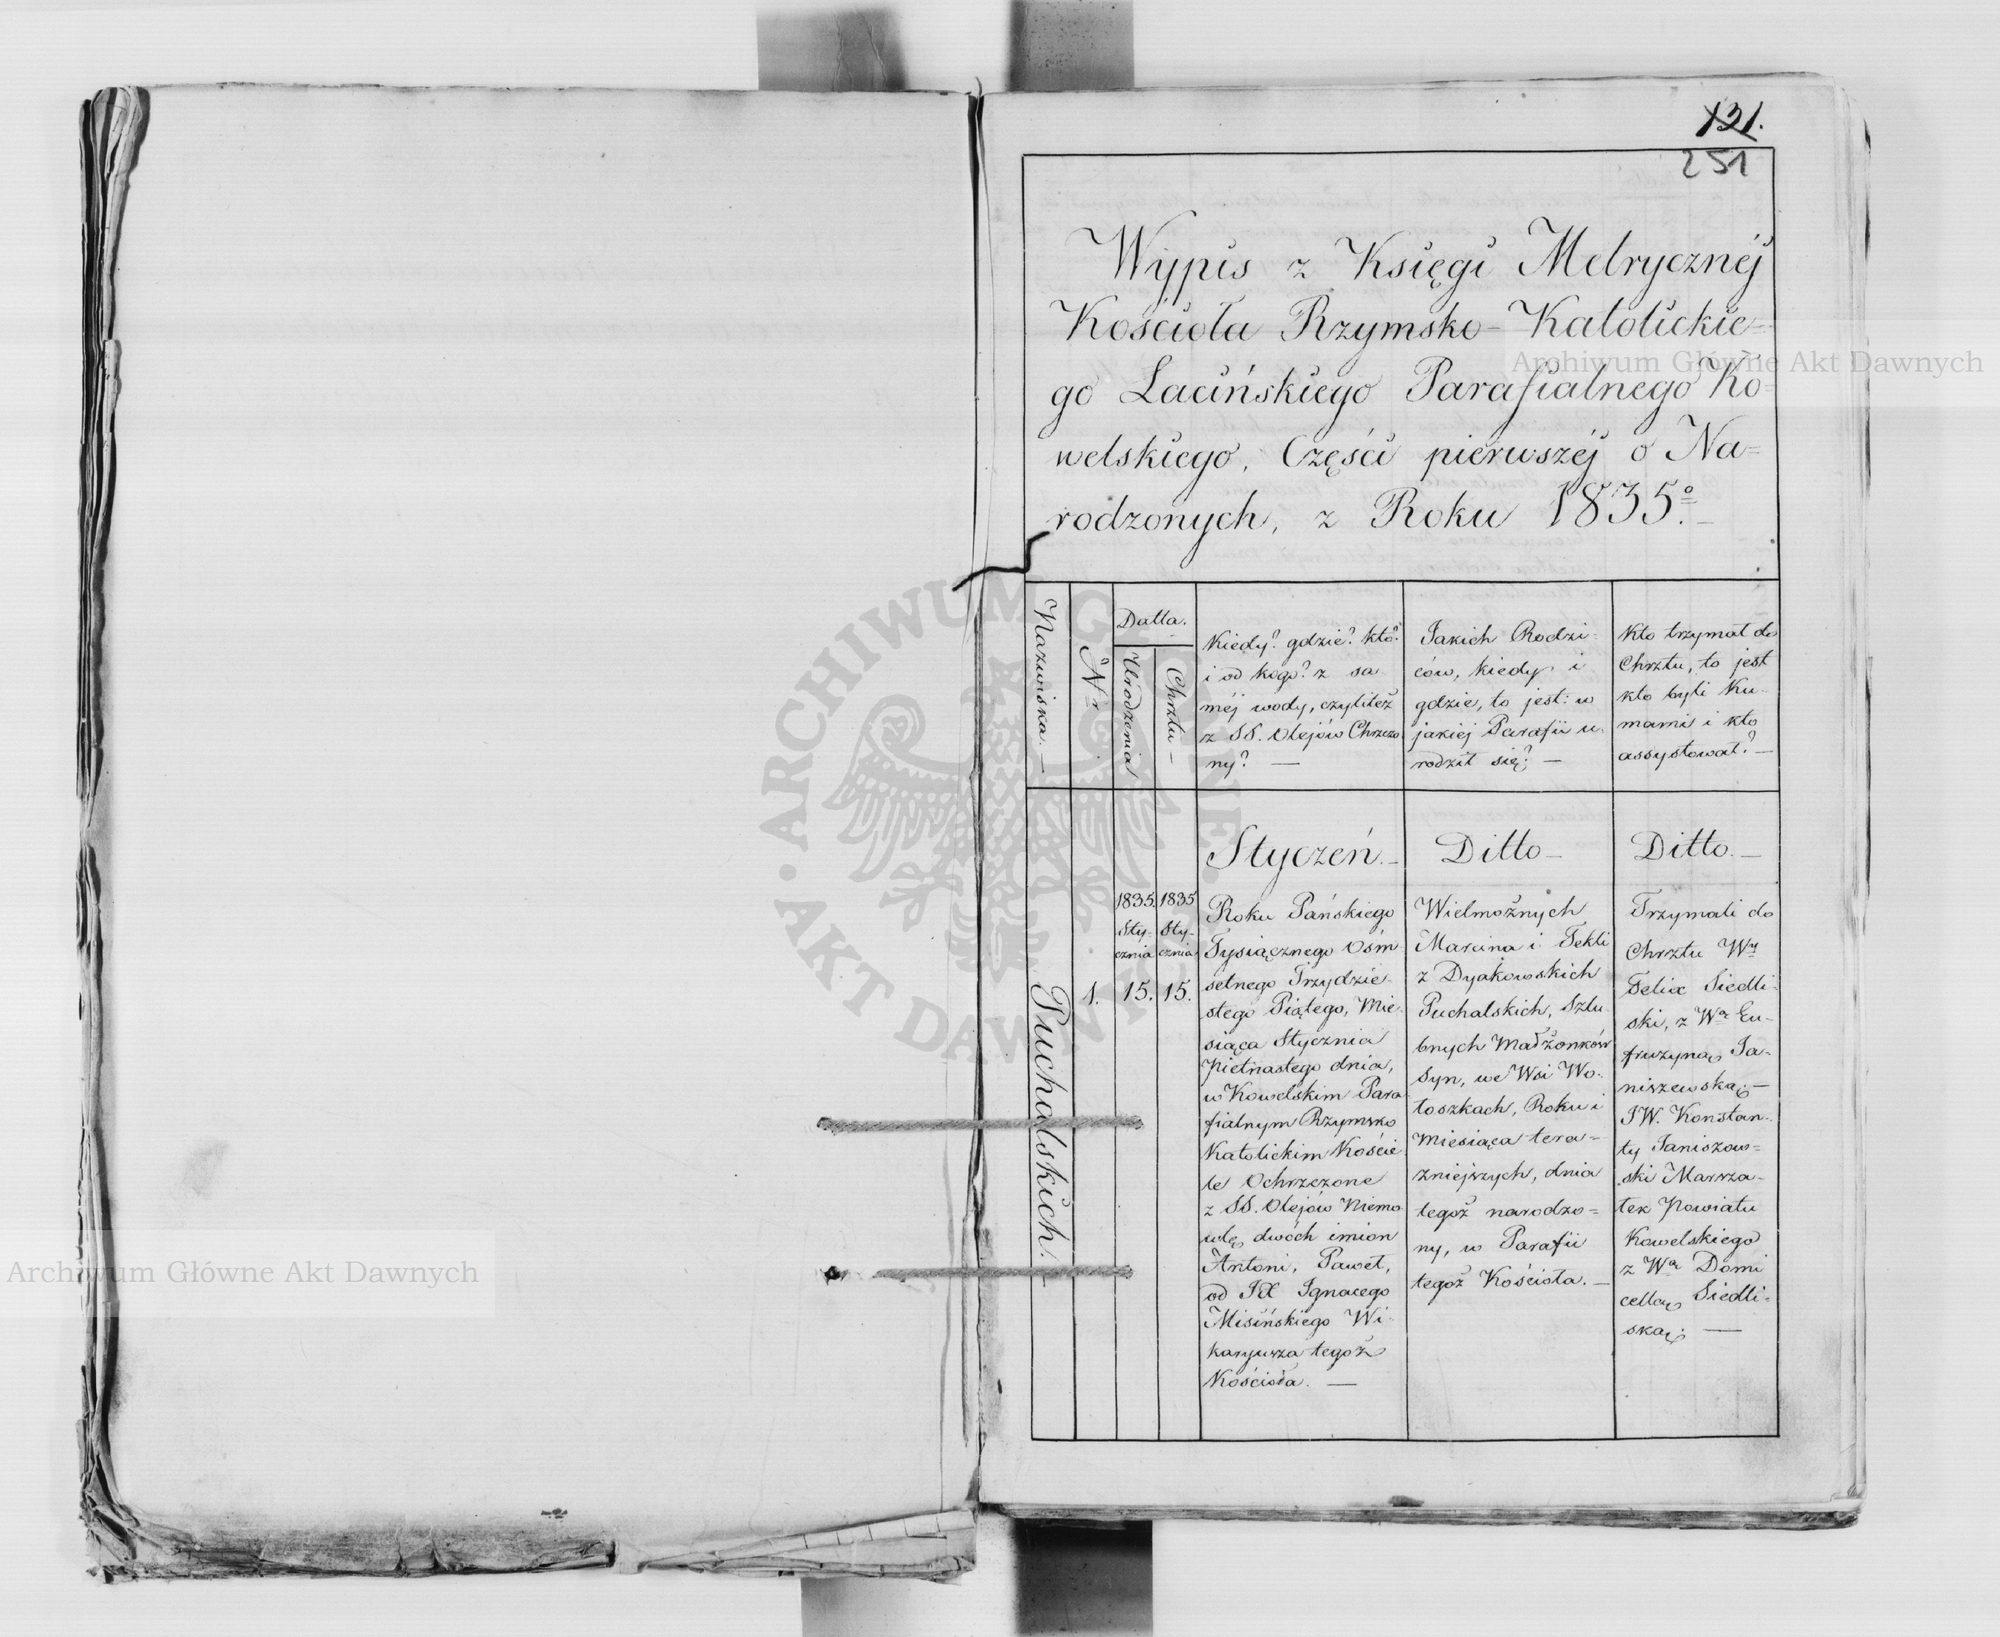 131.
251
Wypis z Księgi Metrycznéj
Kościoła Rzymsko-Katolickie=
go Łacińskiego Parafialnego Ko=
welskiego, Części pierwszéj o Na=
rodzonych, z Roku 1835º.
Nazwiska.
Nr
Datta.
Urodzenia
Chrztu
Kiedy? gdzie? kto?
i od kogo? z sa
méj wody, czyliteż
z SS. Olejów Chrzczo
ny? —
Jakich Rodzi-
ców, kiedy i
gdzie, to jest: w
jakiéj Parafii u-
rodził się? —
Kto trzymał do
Chrztu, to jest
kto byli Ku-
mami i kto
assystował? —
Styczeń. —
Ditto —
Ditto. —
Puchalskich. —
1.
1835.
Sty-
cznia
15.
1835
Sty-
cznia
15.
Roku Pańskiego
Tysiącznego Ośm
setnego Trzydzie-
stego Piątego, Mie-
siąca Stycznia
Piętnastego dnia,
w Kowelskim Para
fialnym Rzymsko
Katolickim Koście
le Ochrzczone
z SS. Olejów Niemo
wlę dwóch imion
Antoni, Paweł,
od JX Ignacego
Misińskiego Wi-
karyusza tegoż
Kościoła. —
Wielmożnych
Marcina i Tekli
z Dyakowskich
Puchalskich, Szlu
bnych Małżonków
Syn, we Wsi Wo-
łoszkach, Roku i
Miesiąca tera=
zniejszych, dnia
tegoż narodzo=
ny, w Parafii
tegoż Kościoła. —
Trzymali do
Chrztu Wny
Felix Siedli-
ski, z Wą Eu-
frozyną Ja-
niszewską; —
JW. Konstan-
ty Janiszew=
ski Marsza-
łek Powiatu
Kowelskiego
z Wą Domi
cellą Siedli-
ską; —
Archiwum Główne Akt Dawnych
Archiwum Główne Akt Dawnych
ARCHIWUM GŁÓWNE AKT DAWNYCH